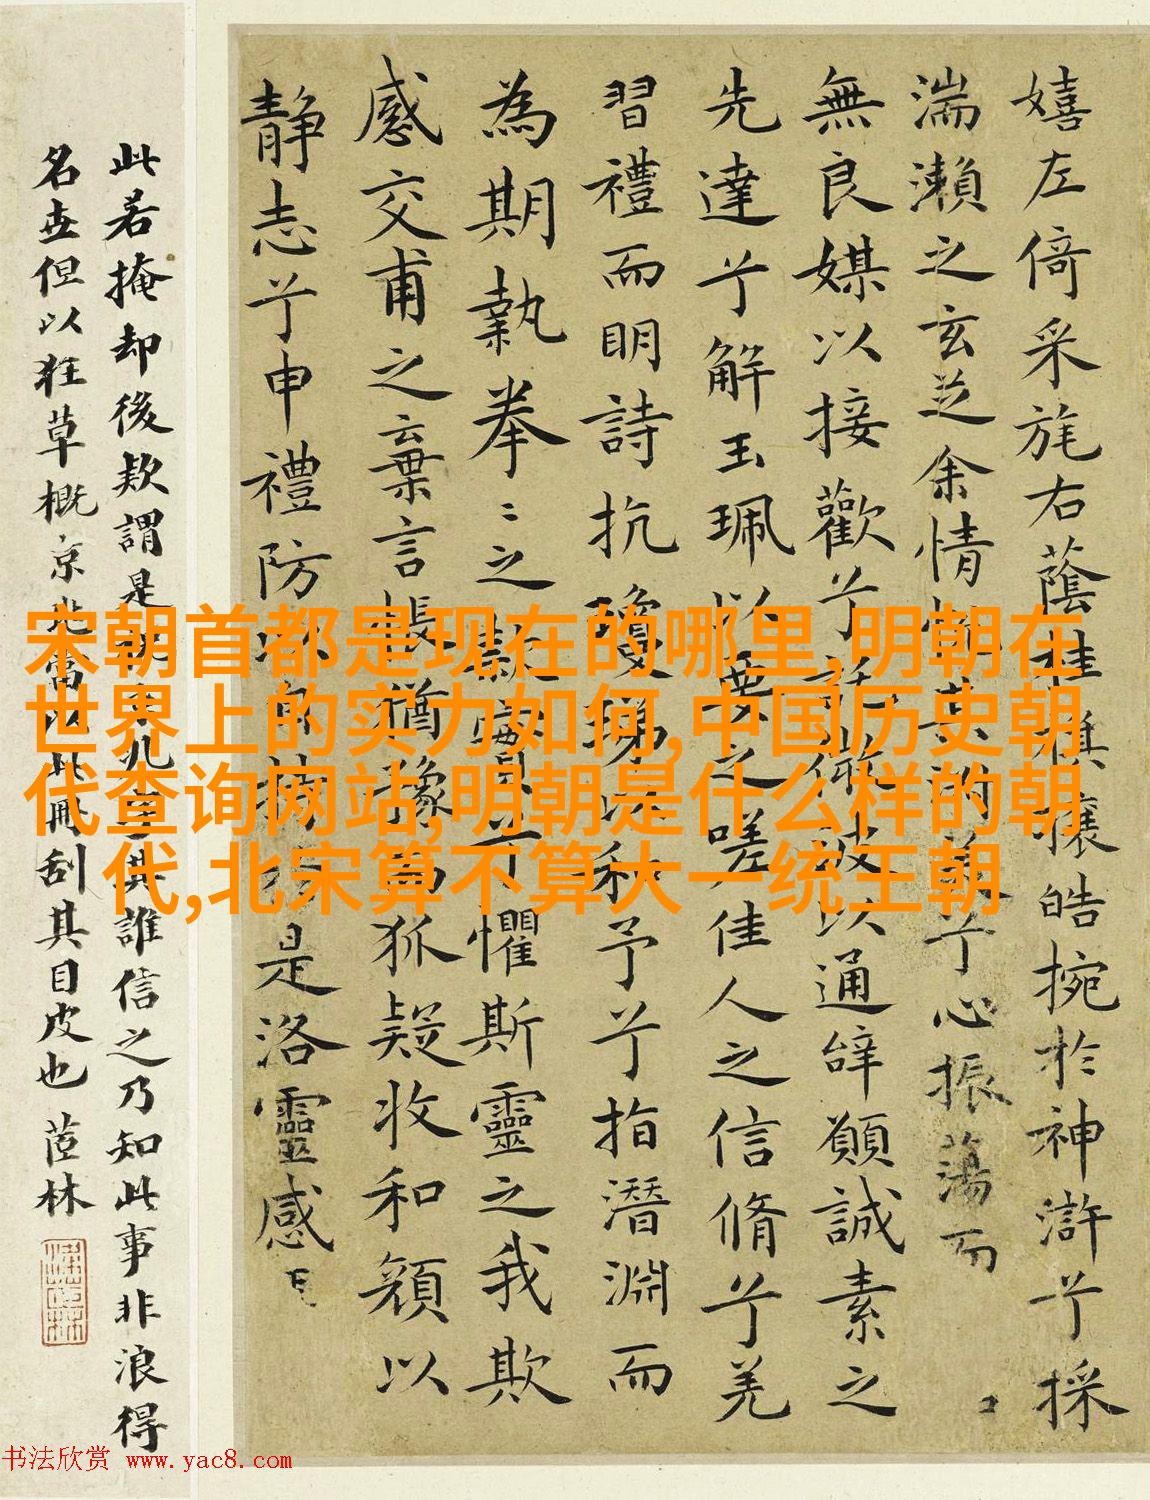 嬉左倚采旄右蔭桂旗攘皓捥於神滸兮採
湍瀨之玄芝余情悅其淑美兮心振蕩而
無良媒以接歡兮託微波以通辝願誠素之
先達兮解玉珮以要之嗟佳人之信脩兮羌
習禮而明詩抗瓊珶以和予兮指潛淵而
為期執拳〻之款實兮懼斯靈之我欺
感交甫之棄言悵猶豫而狐疑收和顏以
静志兮申禮防以自持於是洛靈感
此若掩却後欵謂是誰信之乃知此事非浪得
名世但以狂草概京兆當以此冊刮其目皮也 茝林
宋朝首都是现在的哪里,明朝在
世界上的实力如何,中国历史朝
代查询网站,明朝是什么样的朝
代,北宋算不算大一统王朝
书法欣赏 www.yac8.com